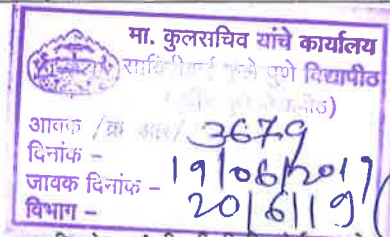 मा. कुलसचिव यांचे कार्यालय
सावित्रीबाई फुले पुणे विद्यापीठ
आवक /क्र आर/ 3679
दिनांक - 19/06/2017
जावक दिनांक - 20/6/19
विभाग -